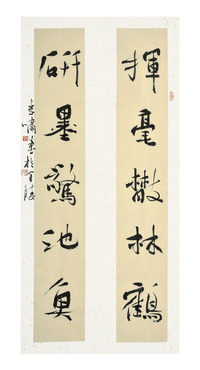 揮毫散林鶴
研墨驚池魚